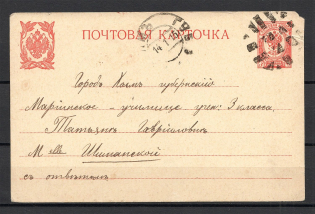 ПОЧТОВАЯ КАРТОЧКА
Городъ Холмъ губернскій
Маріинское училище учен: 3 класса
Татьянѣ Гавріиловнѣ
M elle Шипанской
съ отвѣтомъ